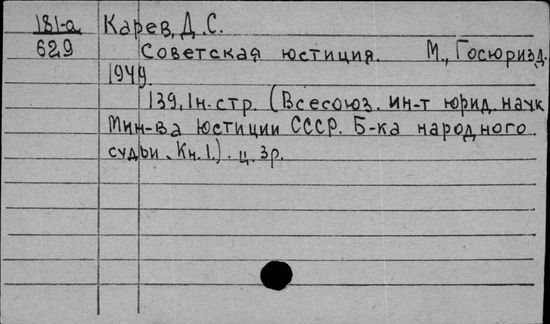 181-а Карев, Д.С.
629 Советская юстиция. М., Госюризд.
1949.
139, 1н.стр. (Всесоюз. ин-т юрид. наук
Мин-ва Юстиции СССР. Б-ка народного
судьи. Кн. 1.). ц. 3р.